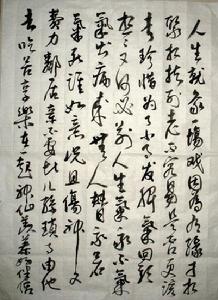 人生就像一場戲因為有緣才相
聚相扶到老不容易是否更該
去珍惜為了小事發脾氣回頭
想想又何必別人生氣我不氣
氣出病來無人替我若
氣死誰如意況且傷神又
費力鄰居親朋不要比兒孫瑣事由他
去吃苦享樂在一起神仙羨慕好伴侶